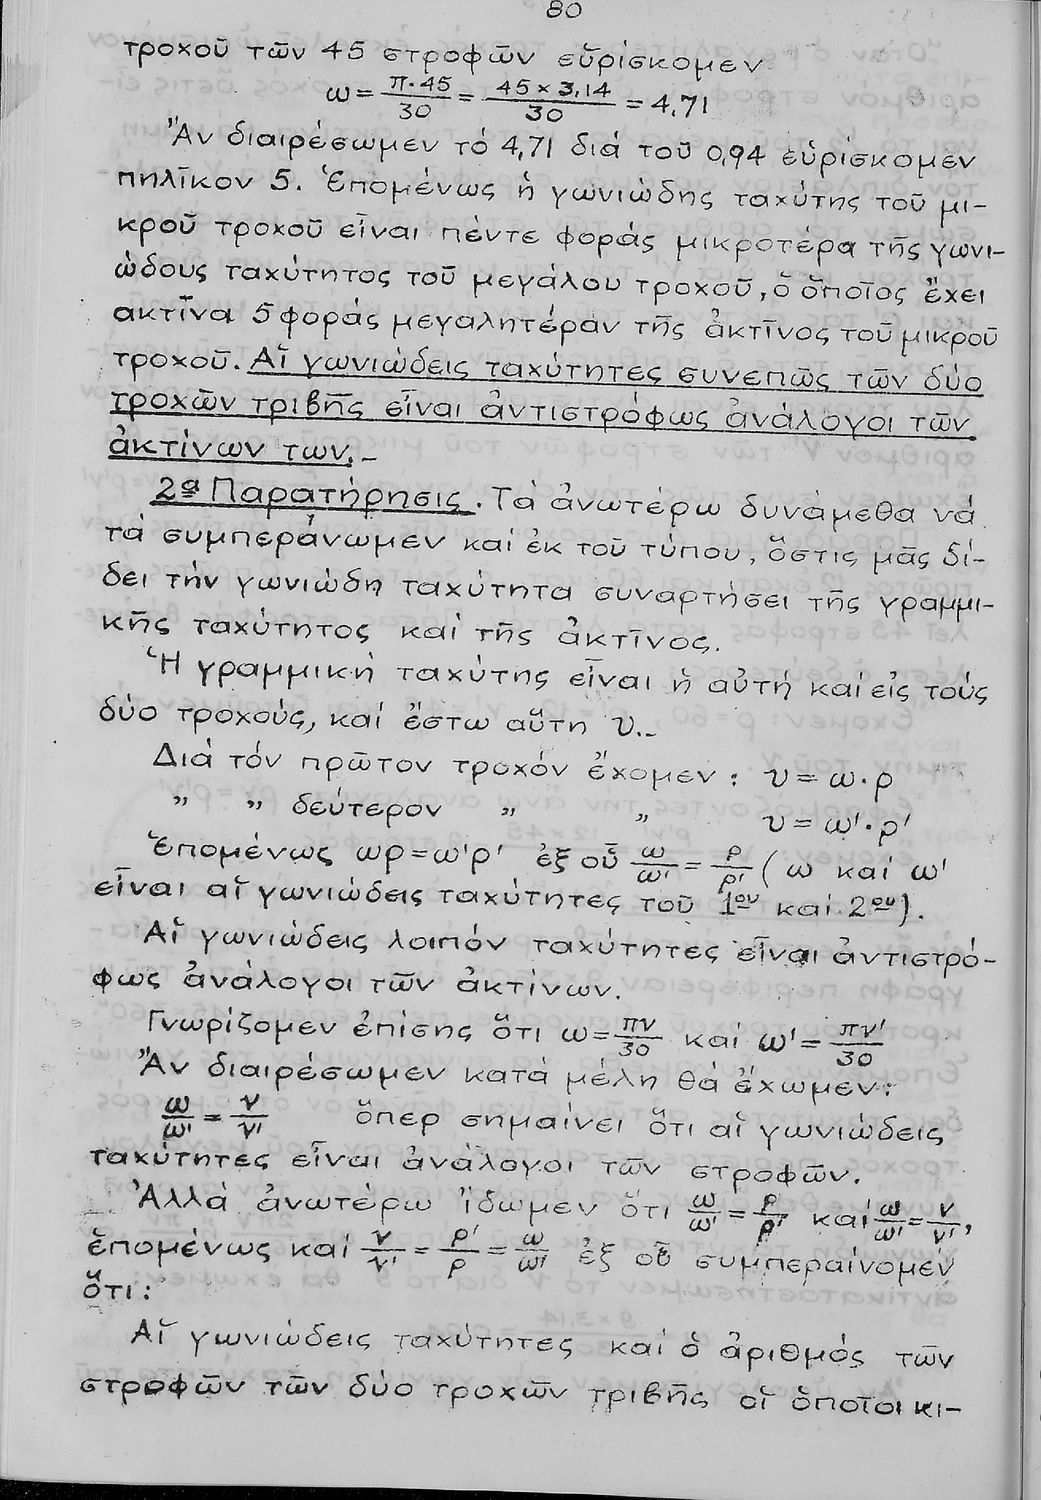 80
τροχοῦ τῶν 45 στροφῶν εὑρίσκομεν
ω = π·45/30 = 45 × 3,14/30 = 4,71
Ἄν διαιρέσωμεν τό 4,71 διά τοῦ 0,94 εὑρίσκομεν
πηλῖκον 5. Ἑπομένως ἡ γωνιώδης ταχύτης τοῦ μι-
κροῦ τροχοῦ εἶναι πέντε φοράς μικροτέρα τῆς γωνι-
ώδους ταχύτητος τοῦ μεγάλου τροχοῦ, ὁ ὁποῖος ἔχει
ακτῖνα 5 φοράς μεγαλητέραν τῆς ἀκτῖνος τοῦ μικροῦ
τροχοῦ. Αἱ γωνιώδεις ταχύτητες συνεπῶς τῶν δύο
τροχῶν τριβῆς εἶναι ἀντιστρόφως ἀνάλογοι τῶν
ἀκτίνων των.–
2α Παρατήρησις. Τά ἀνωτέρω δυνάμεθα νά
τά συμπεράνωμεν καί ἐκ τοῦ τύπου, ὅστις μᾶς δί-
δει τήν γωνιώδη ταχύτητα συναρτήσει τῆς γραμμι-
κῆς ταχύτητος καί τῆς ἀκτῖνος.
Ἡ γραμμική ταχύτης εἶναι ἡ αὐτή καί εἰς τούς
δύο τροχούς, καί ἔστω αὕτη υ.–
Διά τόν πρῶτον τροχόν ἔχομεν : υ = ω·ρ
〃 〃 δεύτερον 〃 〃 υ = ω'·ρ'
Ἑπομένως ωρ = ω'ρ' ἐξ οὗ ω/ω' = ρ/ρ' ( ω καί ω'
εἶναι αἱ γωνιώδεις ταχύτητες τοῦ 1ου καί 2ου).
Αἱ γωνιώδεις λοιπόν ταχύτητες εἶναι ἀντιστρό-
φως ἀνάλογοι τῶν ἀκτίνων.
Γνωρίζομεν ἐπίσης ὅτι ω = πν/30 καί ω' = πν'/30
Ἄν διαιρέσωμεν κατά μέλη θά ἔχωμεν:
ω/ω' = ν/ν' ὅπερ σημαίνει ὅτι αἱ γωνιώδεις
ταχύτητες εἶναι ἀνάλογοι τῶν στροφῶν.
Ἀλλά ἀνωτέρω ἴδωμεν ὅτι ω/ω' = ρ/ρ' καί ω/ω' = ν/ν',
ἑπομένως καί ν/ν' = ρ'/ρ = ω/ω' ἐξ οὗ συμπεραίνομεν
ὅτι:
Αἱ γωνιώδεις ταχύτητες καί ὁ ἀριθμός τῶν
στροφῶν τῶν δύο τροχῶν τριβῆς οἱ ὁποῖοι κι-